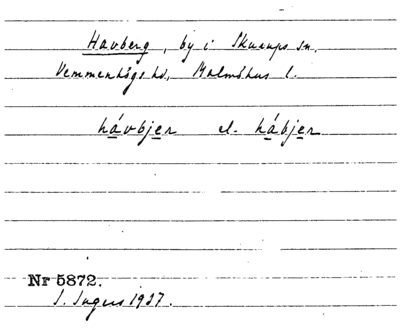 Havberg, by i Skurups sn.
Vemmenhögs hd, Malmöhus l.
hávbjer el. hábjer
Nr 5872.
I. Ingers 1937.